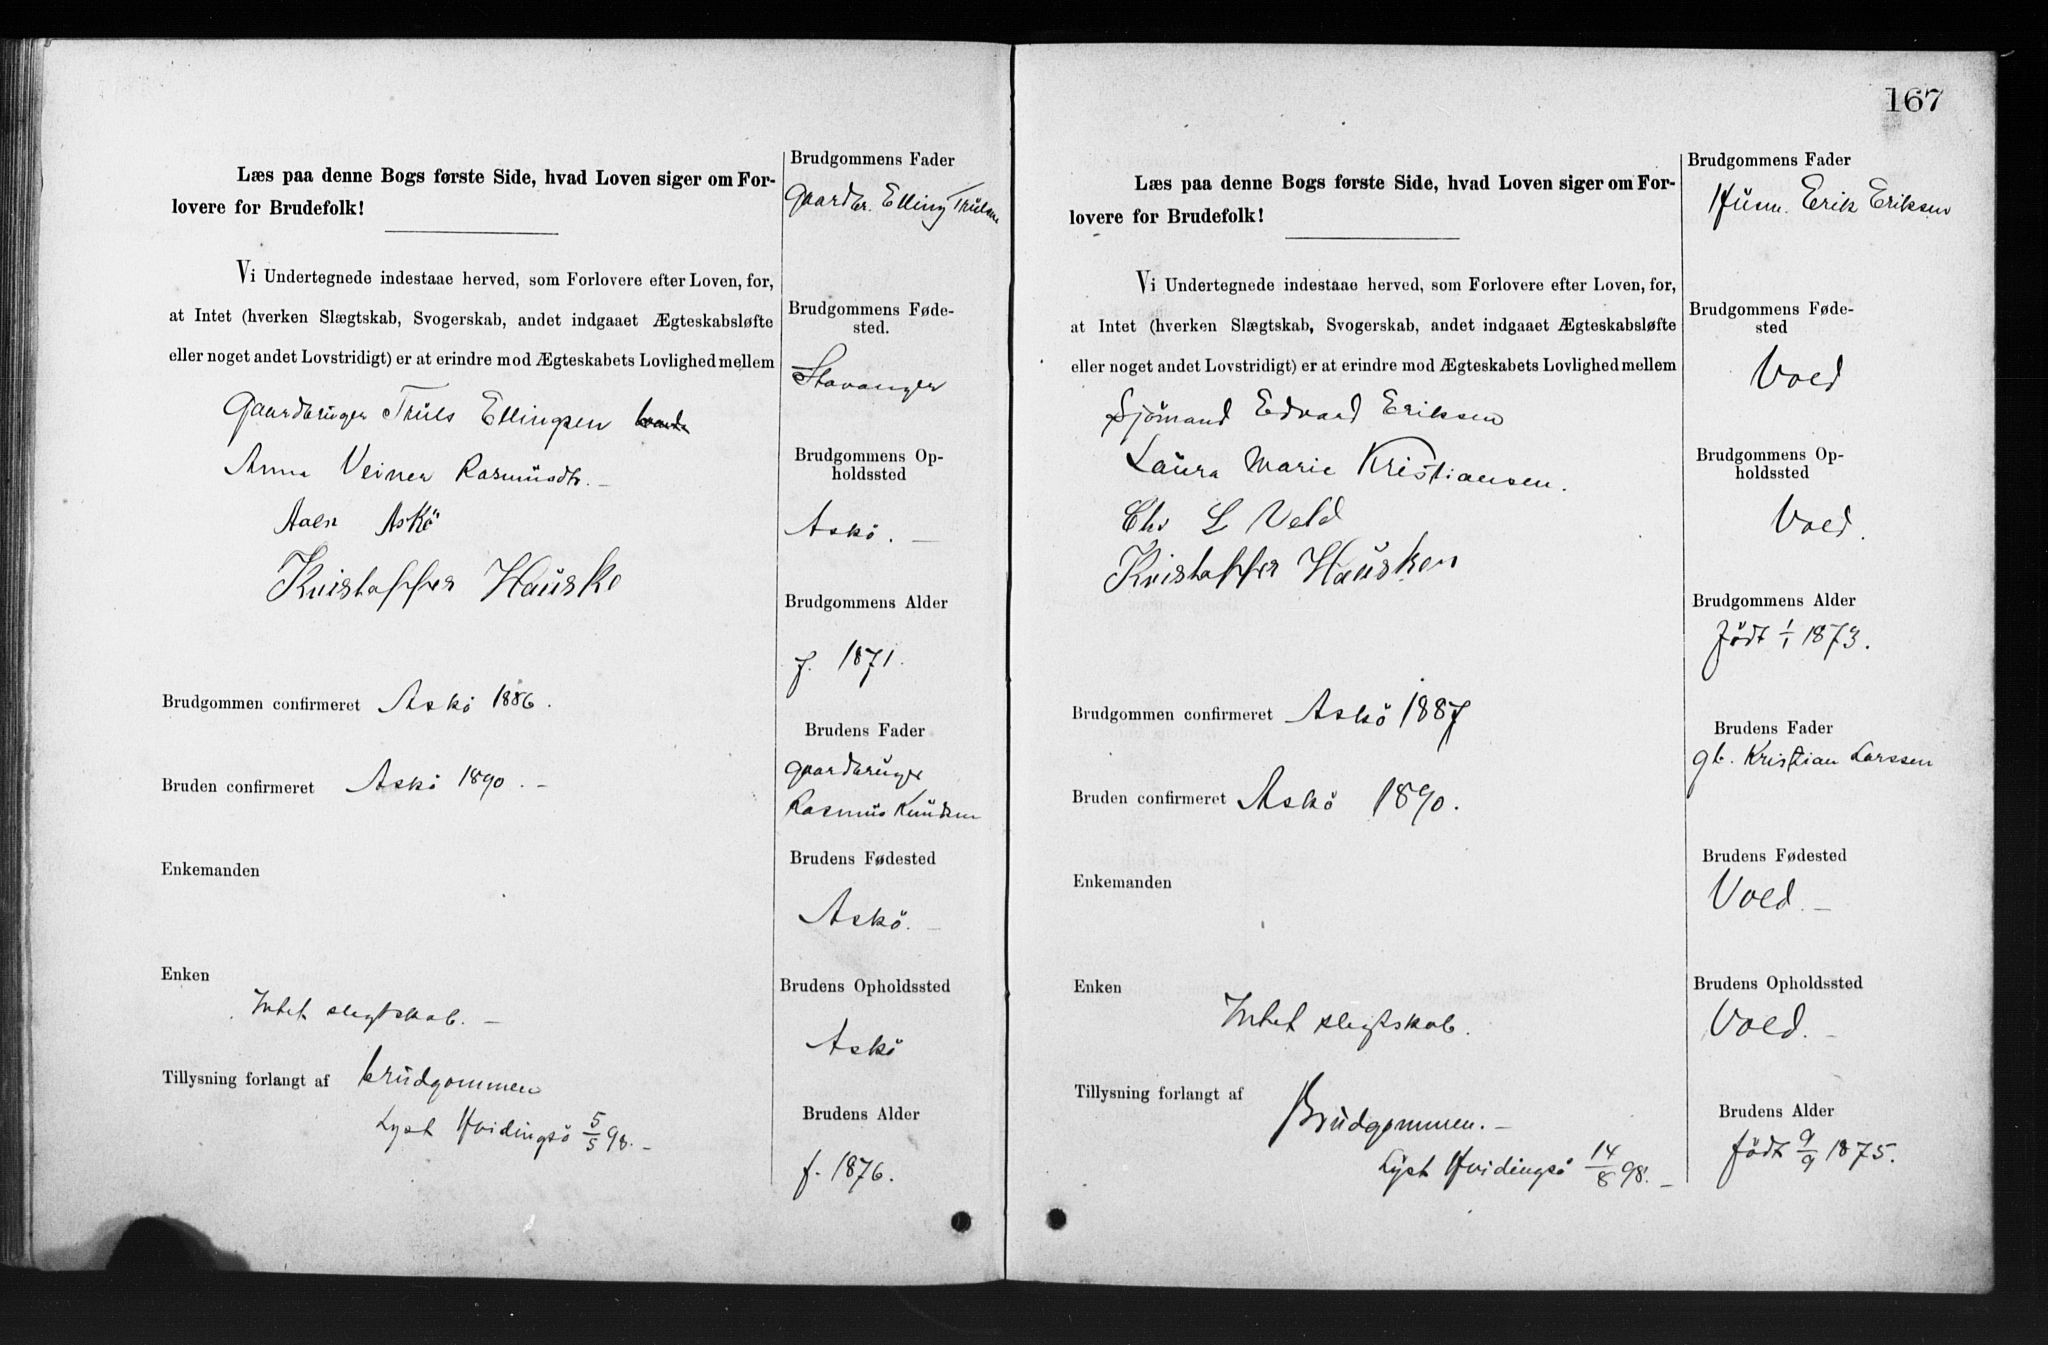 Læs paa denne Bogs første Side, hvad Loven siger om For-
lovere for Brudefolk!
Vi Undertegnede indestaae herved, som Forlovere efter Loven, for,
at Intet (hverken Slægtskab, Svogerskab, andet indgaaet Ægteskabsløfte
eller noget andet Lovstridigt) er at erindre mod Ægteskabets Lovlighed mellem
Gaardbruger Truls Ellingsen
Anna Veiner Rasmusdtr. –
Askö
Kristoffer Hauske
Brudgommen confirmeret Askö 1886.
Bruden confirmeret Askö 1890. –
Enkemanden
Enken
Intet slegtskab. –
Tillysning forlangt af brudgommen
Lyst Hvidingsö 5/5 98. –
Brudgommens Fader
Gaardbr. Elling Trulsen
Brudgommens Føde-
sted.
Stavanger
Brudgommens Op-
holdssted
Askö. –
Brudgommens Alder
f. 1871.
Brudens Fader
Gaardbruger
Rasmus Knudsen
Brudens Fødested
Askö. –
Brudens Opholdssted
Askö
Brudens Alder
f. 1876.
167
Læs paa denne Bogs første Side, hvad Loven siger om For-
lovere for Brudefolk!
Vi Undertegnede indestaae herved, som Forlovere efter Loven, for,
at Intet (hverken Slægtskab, Svogerskab, andet indgaaet Ægteskabsløfte
eller noget andet Lovstridigt) er at erindre mod Ægteskabets Lovlighed mellem
Sjömand Edvard Eriksen
Laura Marie Kristiansen.
Chr L Vold
Kristoffer Hausken
Brudgommen confirmeret Askö 1887
Bruden confirmeret Askö 1890.
Enkemanden
Enken
Intet slegtskab.
Tillysning forlangt af
Brudgommen. –
Lyst Hvidingsö 14/8 98. –
Brudgommens Fader
Husm. Erik Eriksen
Brudgommens Føde-
sted
Vold
Brudgommens Op-
holdssted
Vold.
Brudgommens Alder
Födt 1/1 1873.
Brudens Fader
gb. Kristian Larssen
Brudens Fødested
Vold. –
Brudens Opholdssted
Vold. –
Brudens Alder
födt 9/9 1875.